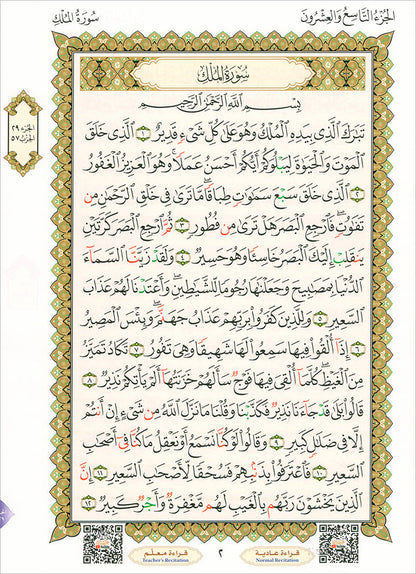 الجُزءُ التَّاسِعُ وَالعِشْرُون
سُورَةُ المُلْكِ
سُورَةُ المُلْكِ
بِسْمِ اللَّهِ الرَّحْمَٰنِ الرَّحِيمِ
تَبَٰرَكَ ٱلَّذِي بِيَدِهِ ٱلْمُلْكُ وَهُوَ عَلَىٰ كُلِّ شَيْءٍ قَدِيرٌ ١ ٱلَّذِي خَلَقَ
ٱلْمَوْتَ وَٱلْحَيَوٰةَ لِيَبْلُوَكُمْ أَيُّكُمْ أَحْسَنُ عَمَلًا ۚ وَهُوَ ٱلْعَزِيزُ ٱلْغَفُورُ
٢ ٱلَّذِي خَلَقَ سَبْعَ سَمَٰوَٰتٍ طِبَاقًا ۖ مَّا تَرَىٰ فِي خَلْقِ ٱلرَّحْمَٰنِ مِن
تَفَٰوُتٍ ۖ فَٱرْجِعِ ٱلْبَصَرَ هَلْ تَرَىٰ مِن فُطُورٍ ٣ ثُمَّ ٱرْجِعِ ٱلْبَصَرَ كَرَّتَيْنِ
يَنقَلِبْ إِلَيْكَ ٱلْبَصَرُ خَاسِئًا وَهُوَ حَسِيرٌ ٤ وَلَقَدْ زَيَّنَّا ٱلسَّمَآءَ
ٱلدُّنْيَا بِمَصَٰبِيحَ وَجَعَلْنَٰهَا رُجُومًا لِّلشَّيَٰطِينِ ۖ وَأَعْتَدْنَا لَهُمْ عَذَابَ
ٱلسَّعِيرِ ٥ وَلِلَّذِينَ كَفَرُوا۟ بِرَبِّهِمْ عَذَابُ جَهَنَّمَ ۖ وَبِئْسَ ٱلْمَصِيرُ
٦ إِذَآ أُلْقُوا۟ فِيهَا سَمِعُوا۟ لَهَا شَهِيقًا وَهِيَ تَفُورُ ٧ تَكَادُ تَمَيَّزُ
مِنَ ٱلْغَيْظِ ۖ كُلَّمَآ أُلْقِيَ فِيهَا فَوْجٌ سَأَلَهُمْ خَزَنَتُهَآ أَلَمْ يَأْتِكُمْ نَذِيرٌ ٨
قَالُوا۟ بَلَىٰ قَدْ جَآءَنَا نَذِيرٌ فَكَذَّبْنَا وَقُلْنَا مَا نَزَّلَ ٱللَّهُ مِن شَيْءٍ إِنْ أَنتُمْ
إِلَّا فِي ضَلَٰلٍ كَبِيرٍ ٩ وَقَالُوا۟ لَوْ كُنَّا نَسْمَعُ أَوْ نَعْقِلُ مَا كُنَّا فِيٓ أَصْحَٰبِ
ٱلسَّعِيرِ ١٠ فَٱعْتَرَفُوا۟ بِذَنۢبِهِمْ فَسُحْقًا لِّأَصْحَٰبِ ٱلسَّعِيرِ ١١ إِنَّ
ٱلَّذِينَ يَخْشَوْنَ رَبَّهُم بِٱلْغَيْبِ لَهُم مَّغْفِرَةٌ وَأَجْرٌ كَبِيرٌ ١٢
الجزء ٢٩
الحزب ٥٧
قراءة معلم
Teacher's Recitation
٢
قراءة عادية
Normal Recitation